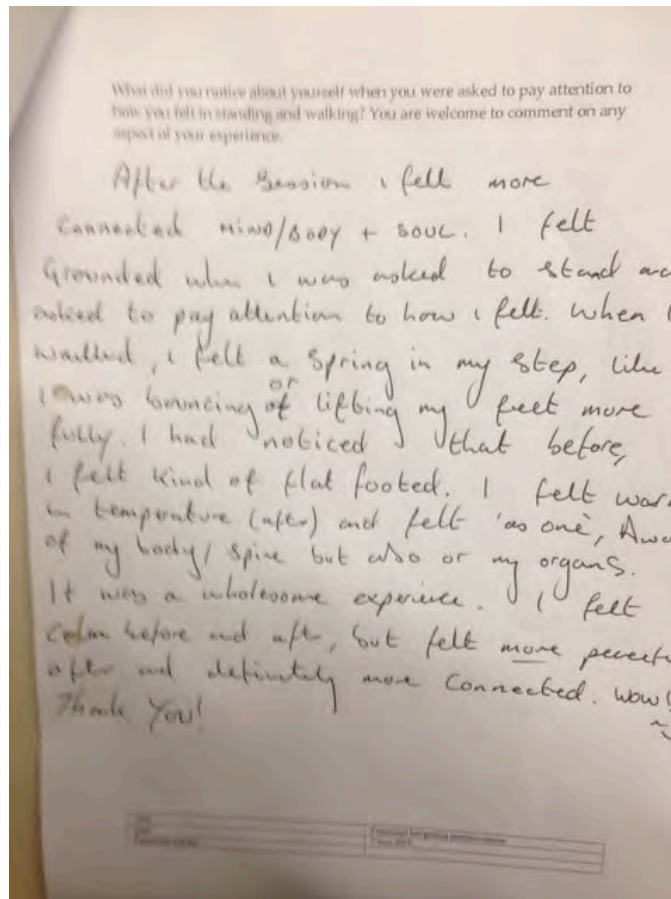 What did you notice about yourself when you were asked to pay attention to
how you felt in standing and walking? You are welcome to comment on any
aspect of your experience.
After the Session i felt more
connected MIND/BODY + SOUL. I felt
Grounded when I was asked to stand
asked to pay attention to how i felt. When
walked, i felt a spring in my step, like
I was bouncing or of lifting my feet more
fully. I had noticed that before,
i felt kind of flat footed. I felt
in temperature (after) and felt 'as one',
of my body/spine but also or my organs.
It was a wholesome experience. I felt
calm before and after, but felt more
after and definitely more Connected. Wow!
Thank You!